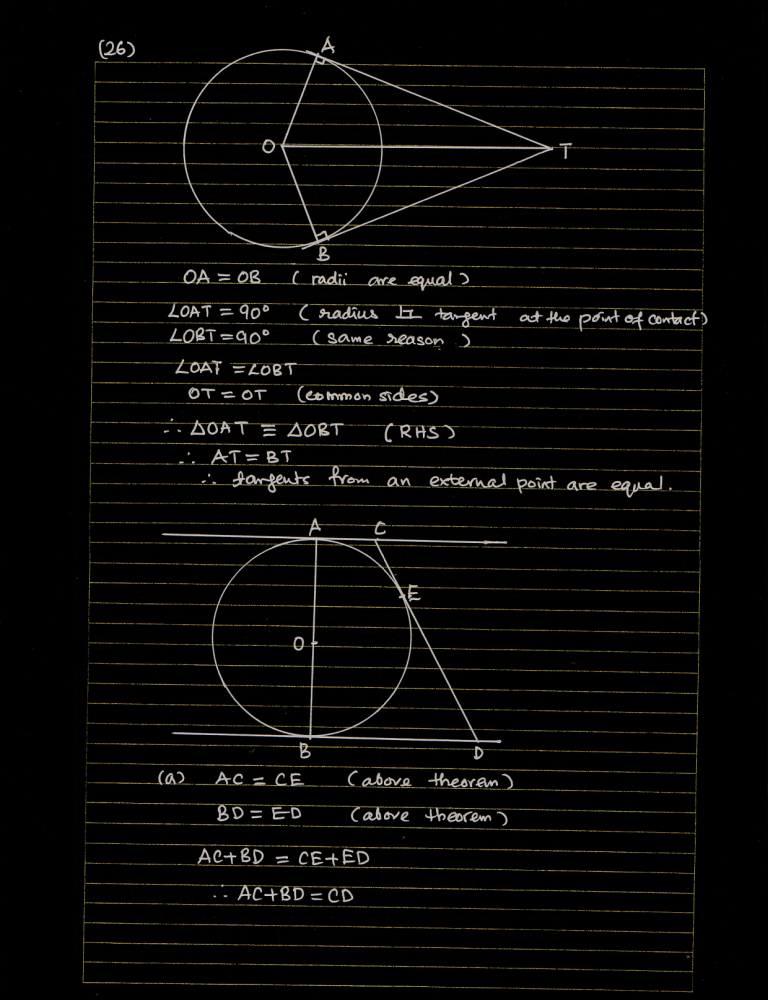 (26)
A
O
T
B
OA = OB ( radii are equal )
∠OAT = 90° ( radius ⊥ tangent at the point of contact)
∠OBT = 90° (same reason )
∠OAT = ∠OBT
OT = OT (common sides)
∴ △OAT ≡ △OBT (RHS)
∴ AT = BT
∴ tangents from an external point are equal.
A C
E
O
B D
(a) AC = CE (above theorem)
BD = ED (above theorem)
AC+BD = CE+ED
∴ AC+BD = CD